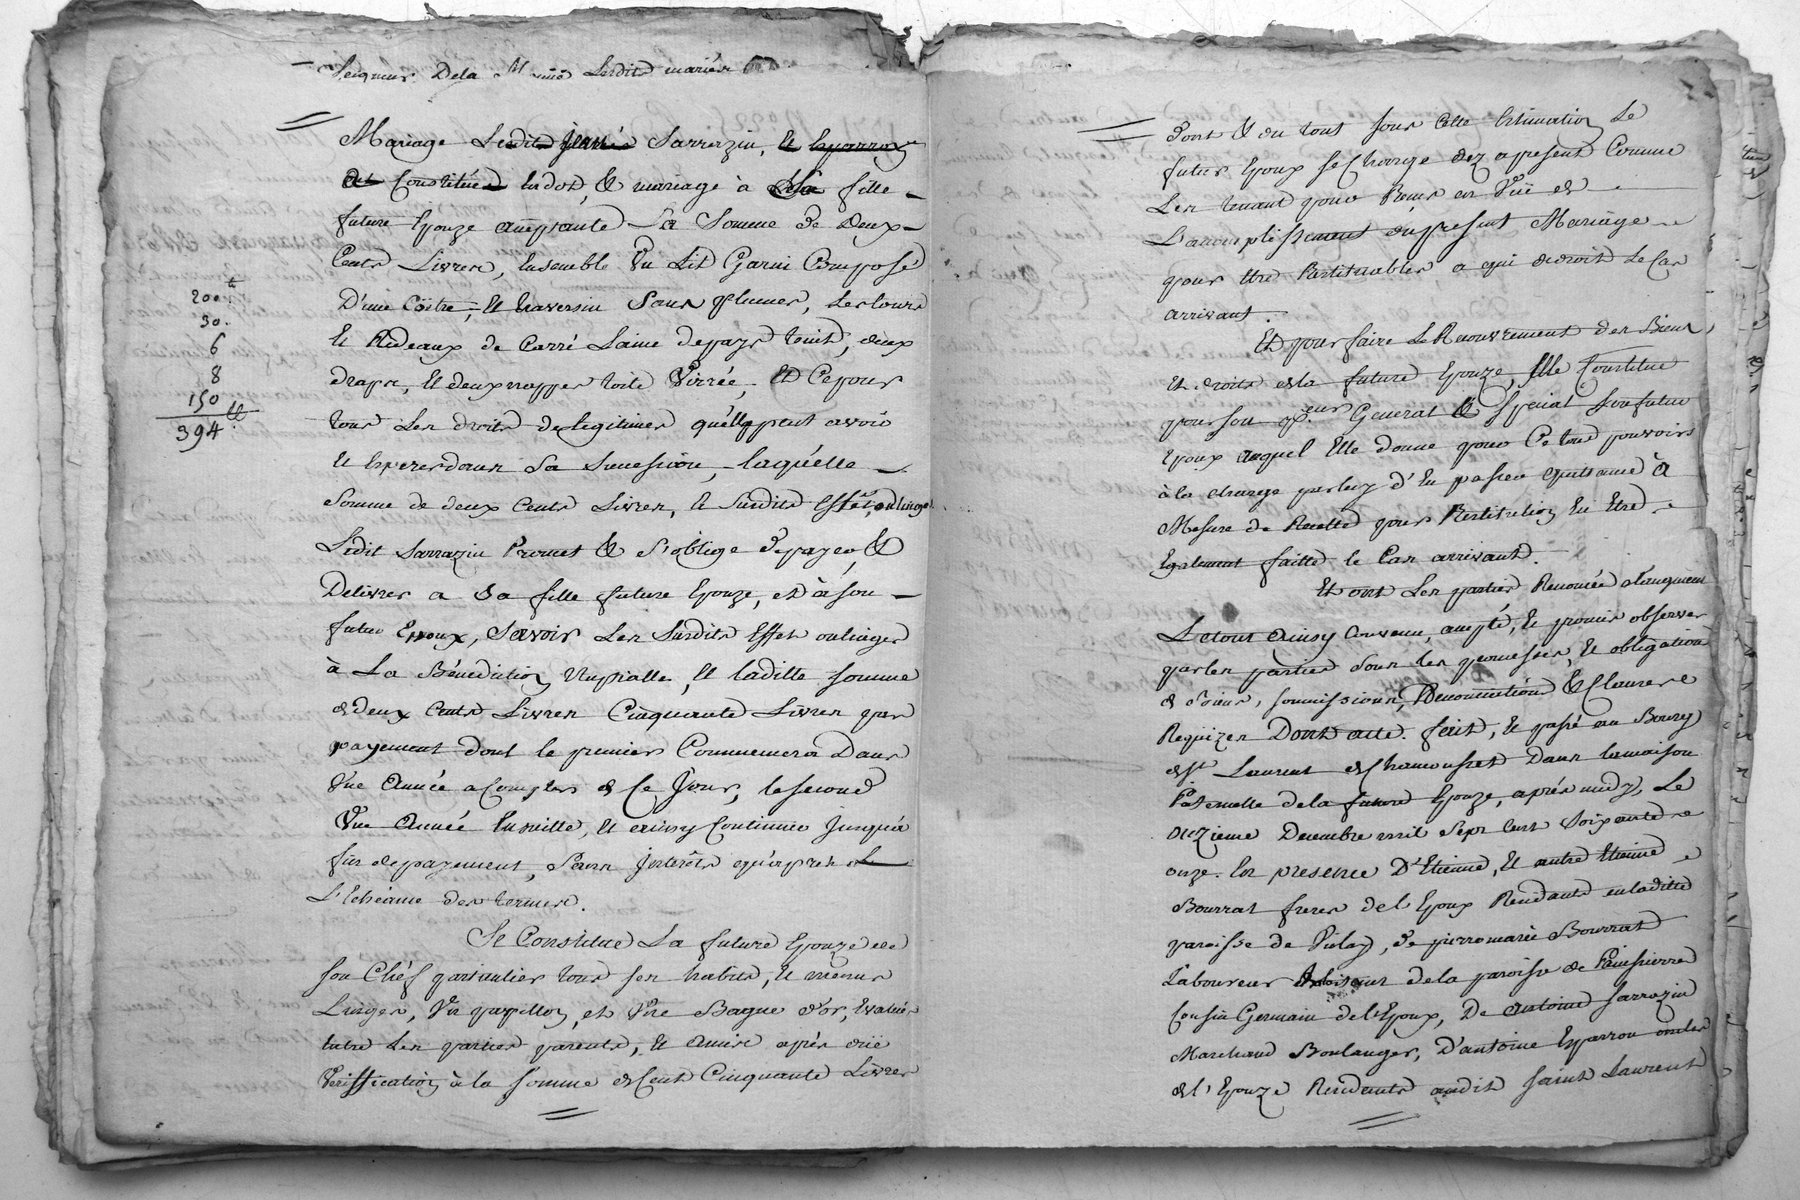 Seigneur Dela Lesdits mariés
Mariage Ledit jean Sarrazin, et Esparron
Constitué en dot & mariage à Sa fille
future Epouze aceptante La Somme de Deux
Cents Livres, Ensemble Un Lit Garni Composé
D'une Coitre, et traversin Sans plumes, les tours
et Rideaux de Carré Laine depays teint, deux
draps, et deux nappes toile Virrée, et Ce pour
tous Les droits de legitimes qu'elle peut avoir
et Esperer dans Sa Sucession, laquelle
Somme de deux Cents Livres, et Susdits Effets, ou linges
Ledit Sarrazin Promet & S'oblige de payer, &
Delivrer a Sa fille future Epouze, et à son
futur Epoux, Savoir Les Susdits Effets ou linges
à La Bénédiction Nuptialle, et laditte somme
de deux Cents Livres Cinquante Livres par
payement dont le premier Commencera Dans
Une Année a Compter de Ce Jour, le second
Une Année Ensuitte, et ainsy Continuer Jusqu'à
fin de payement, Sans Interêts qu'après
L'Echéance des termes.
200.
30.
6
8
150
394
Se Constitue La future Epouze de
son Chéf particulier tous ses habits, et menus
Linges, Un papillon, et Une Bague d'or, Evalués
Entre Les parties parents, et Amis après due
Veriffication à la somme de Cent Cinquante Livres
dont & du tout sous Cette Estimation Le
futur Epoux se Charge dez apresent Comme
Les tenant pour Reçus en Vüe de
L'accomplissement du present Mariage
pour Etre Restituables a qui de droit le Cas
arrivant.
Et pour faire Le Recouvrement des Biens,
et droits de la future Epouze, Elle Constitue
pour son Général & Special Son futur
Epoux auquel Elle donne pour Ce tous pouvoirs
à la charge par luy d'En passer quittance à
Mesure de Recette pour Restitution En Etre
Egalement faitte le Cas arrivant.
Et ont Les parties Renoncé
Le tout Ainsy Convenu, accepté, et promis observer
par les parties sous les promesses, et obligations
de biens, soumissions, Renonciations & Clauses
Requizes Dont acte. fait, et passé au Bourg
de St. Laurent de Chamousset Dans la maison
Paternelle de la future Epouze, aprés midy, Le
onzieme Decembre mil Sept Cent Soixante
onze. En presence D'Etienne, et autre Etienne
Bourrat freres de l'Epoux Residants en laditte
paroisse de Viday, de pierre marie Bourrat
Laboureur de la paroisse de
Cousin Germain de l'Epoux, De Antoine Sarrazin
Marchand Boulanger, D'antoine Esparron oncles
de l'Epouze Residants audit Saint Laurent